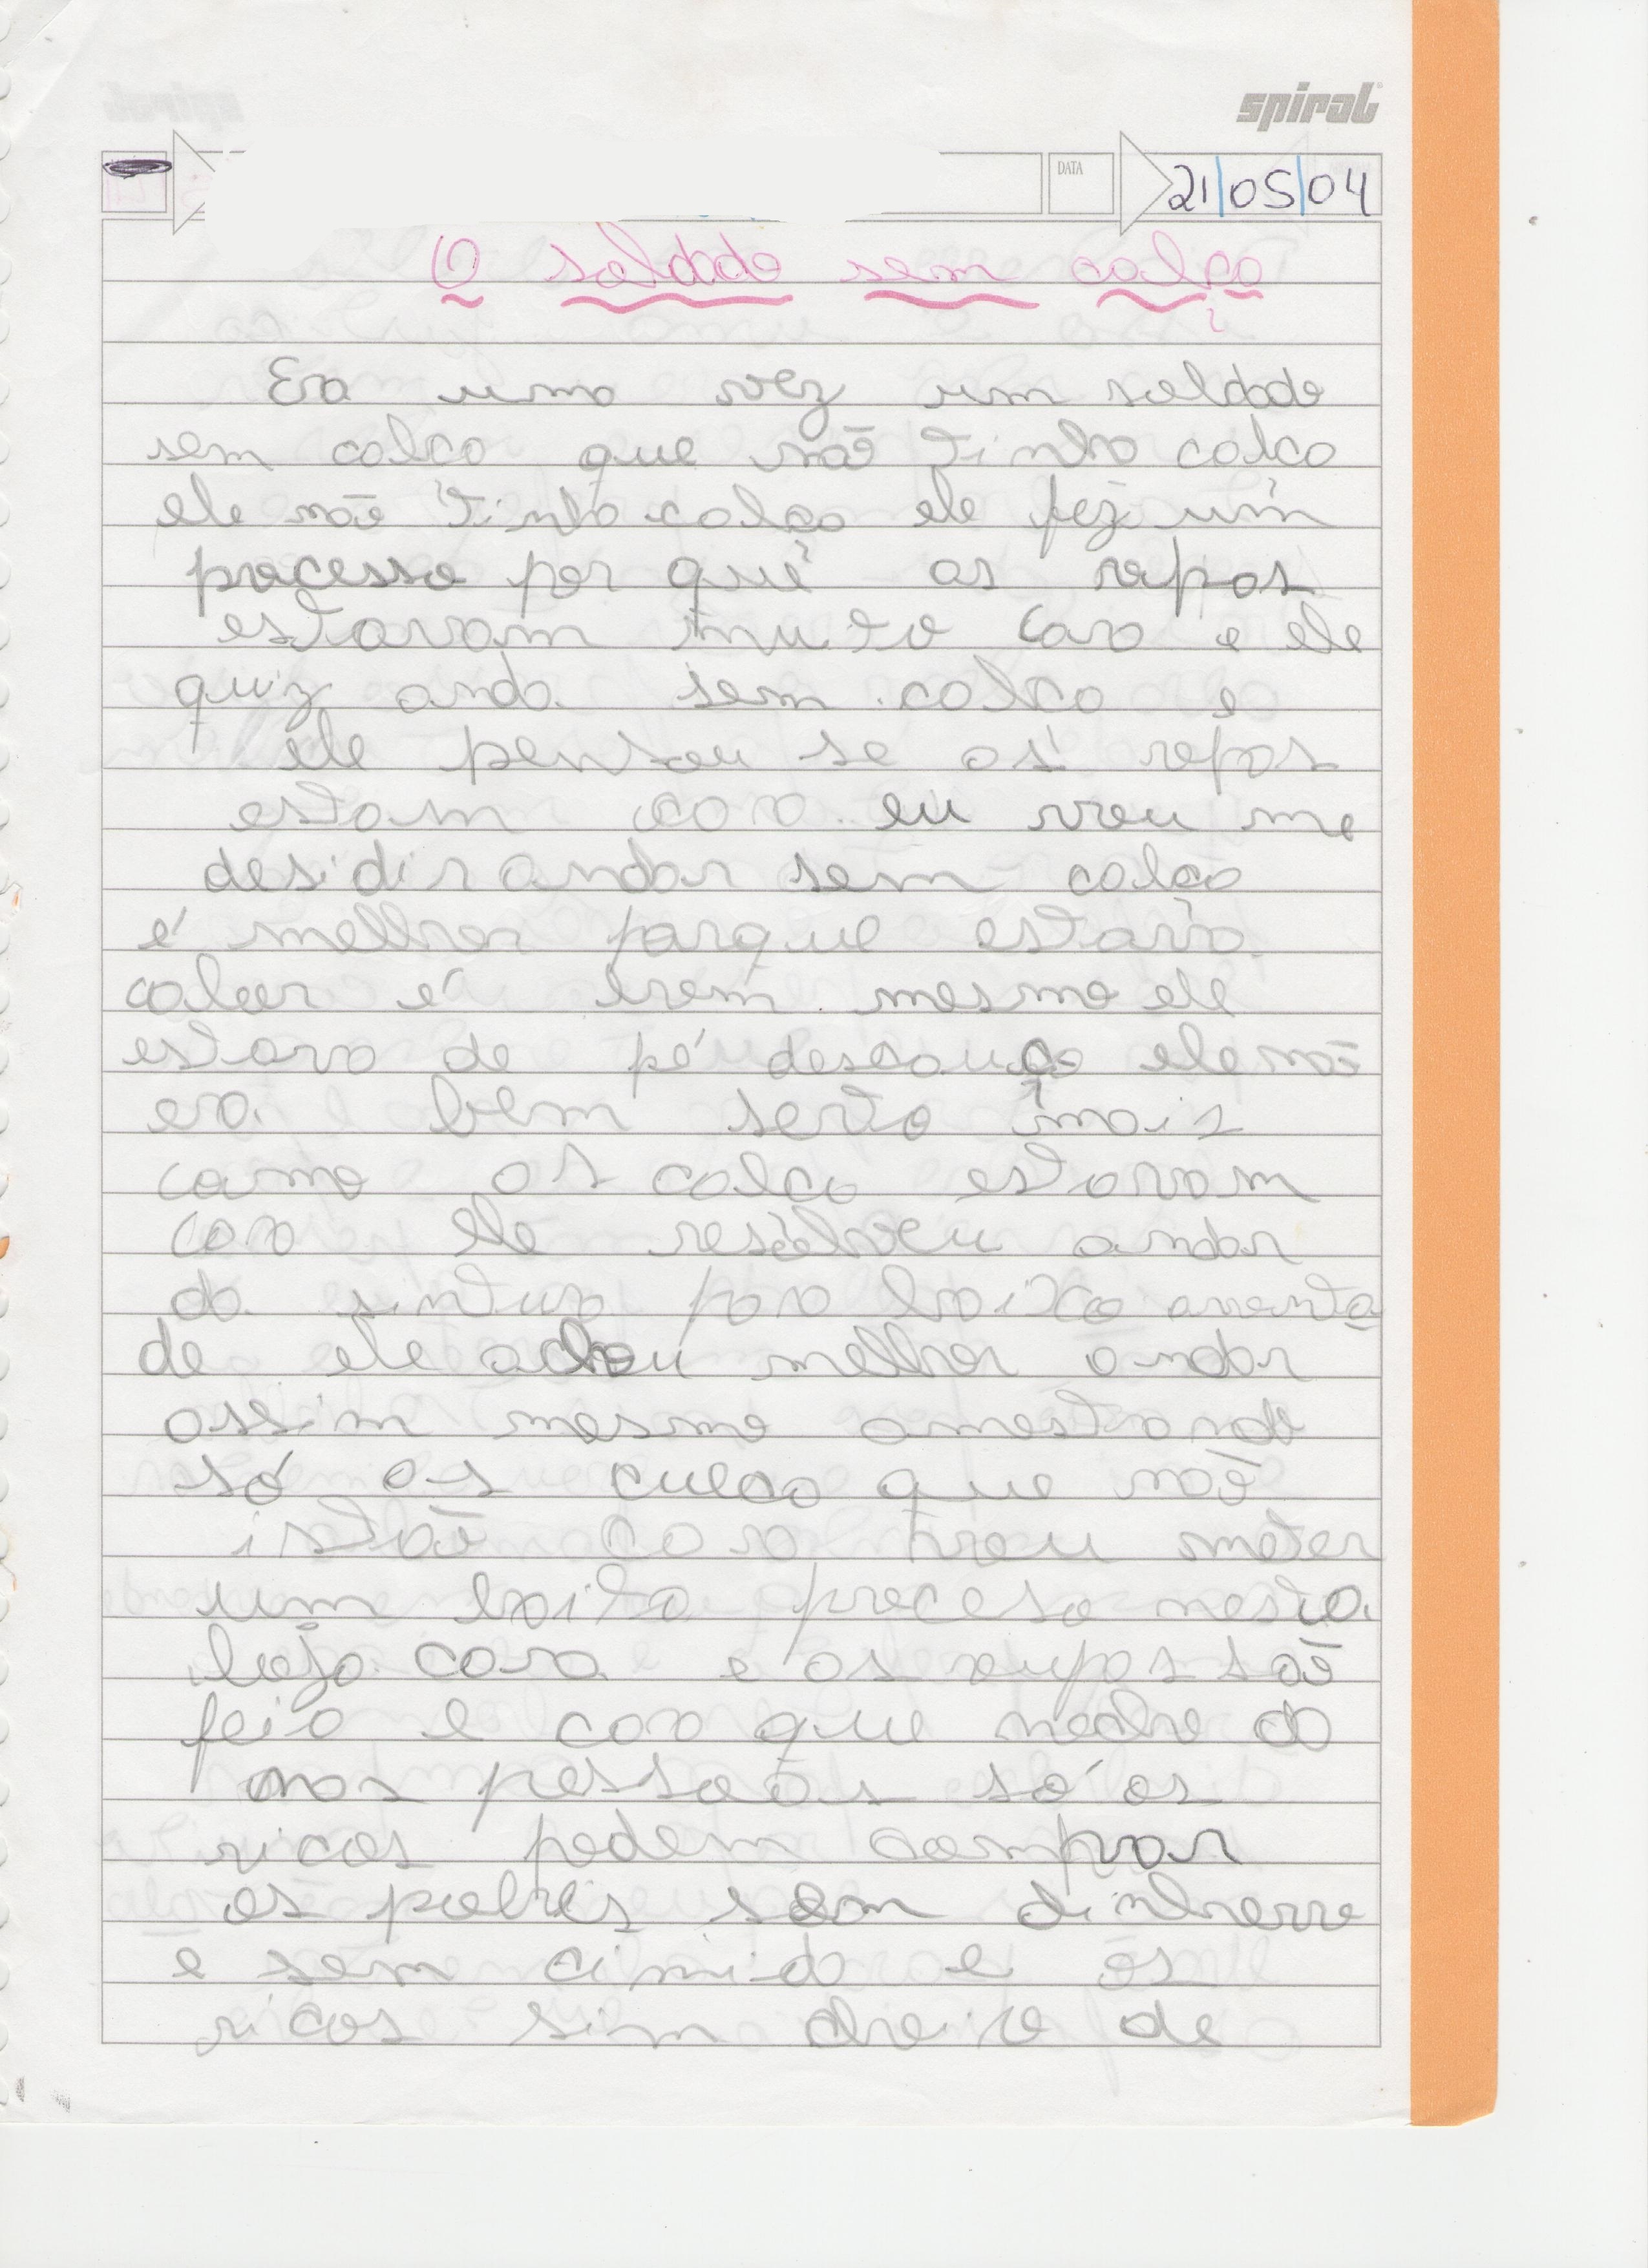 spiral
DATA 21/05/04
O soldado sem calça
Era uma vez um soldado
sem calca que não tinha calca
ele não tinha calça ele fez um
processo por quê as ropas
estavam muto caro e ele
quiz anda sem calca e
ele pensou se as ropas
estam cara eu vou me
desidir andar sem calça
é melhor porque estava
calor é bem mesmo ele
estava de pé descauço ele não
era bem serto mais
como as calca estavam
cara ele resolveu andar
da sintura para baixo
de ele achou melhor andar
assim mesmo amostrando
só as cueca que não
istão cara vou meter
um baita proceso nesta
loja cara e as roupas são
feia e cara que
nas pessoas só os
ricos podem comprar
os pobris sem dinherro
e sem cimida e os
ricos sim cheio de